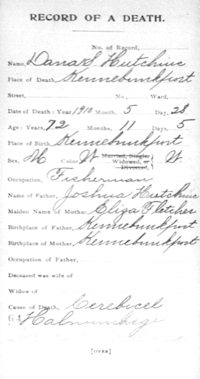 RECORD OF A DEATH.
No. of Record,
Name, Dana S. Hutchins
Place of Death, Kennebunkport
Street, No., Ward,
Date of Death: Year, 1910 Month, 5 Day, 28
Age: Years, 72 Months, 11 Days, 5
Place of Birth, Kennebunkport
Sex, M Color W Married, Single, Widowed, or Divorced, W
Occupation, Fisherman
Name of Father, Joshua Hutchins
Maiden Name of Mother, Eliza Fletcher
Birthplace of Father, Kennebunkport
Birthplace of Mother, Kennebunkport
Occupation of Father,
Deceased was wife of
Widow of
Cause of Death, Cerebicel
64
[OVER]